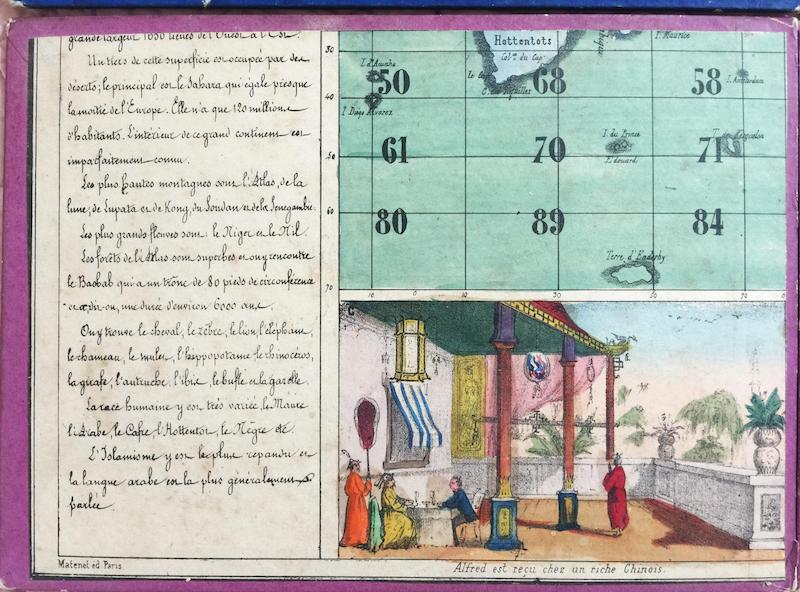 grande largeur 1650 lieues de l'Ouest à l'Est.
Un tiers de cette superficie est occupée par des
déserts; le principal est le Sahara qui égale presque
la moitié de l'Europe. Elle n'a que 120 millions
d'habitants. L'intérieur de ce grand continent est
imparfaitement connu.
Les plus hautes montagnes sont l'Atlas, de la
lune, de Lupata et de Kong, du Soudan et de la Senegambie.
Les plus grands fleuves sont: le Niger et le Nil.
Les forêts de l'Atlas sont superbes et on y rencontre
le Baobab qui a un tronc de 80 pieds de circonférence
et a, dit-on, une durée d'environ 6000 ans.
On y trouve le cheval, le zèbre, le lion, l'éléphant,
le chameau, le mulet, l'hippopotame, le rhinocéros,
la girafe, l'autruche, l'ibis, le buffle et la gazelle.
La race humaine y est très variée, le Maure
l'Arabe, le Cafre, l'Hottentot, le Nègre etc.
L'Islamisme y est le plus repandu et
la langue arabe est la plus généralement
parlée.
Matenel éd. Paris.
Hottentots
Colie du Cap
Le Cap
C. des Aiguilles
I. Maurice
I. d'Acunha
I. Diego Alvarez
I. Amsterdam
I. du Prince
Edouard
T. de Kerguelen
Terre d'Enderby
30
40
50
60
70
50
68
58
61
70
71
80
89
84
10
0
10
20
30
40
50
60
70
80
G
Alfred est reçu chez un riche Chinois.